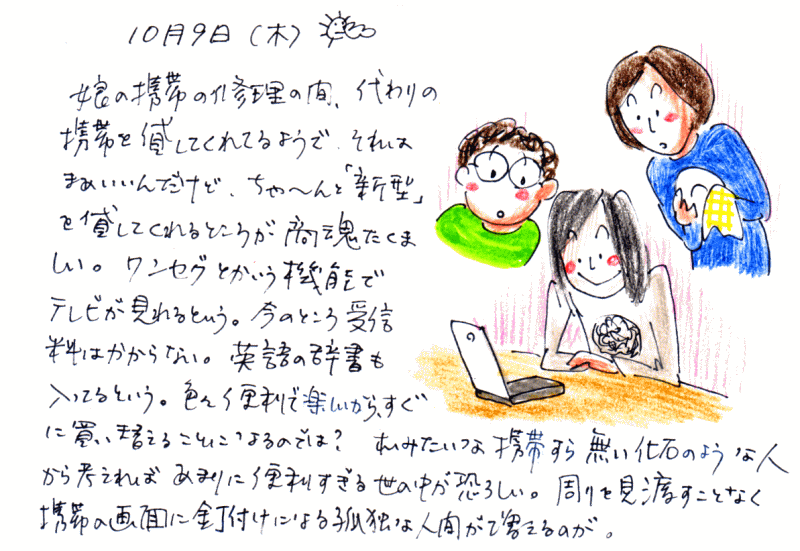 10月9日(木)
娘の携帯の修理の間、代わりの
携帯を貸してくれてるようで、それは
まぁいいんだけど、ちゃ～んと「新型」
を貸してくれるところが商魂たくま
しい。ワンセグとかいう機能で
テレビが見れるという。今のところ受信
料はかからない。英語の辞書も
入ってるという。色々便利で楽しいから、すぐ
に買い替えることになるのでは? 私みたいな携帯すら無い化石のような人
から考えればあまりに便利すぎる世の中が恐ろしい。周りを見渡すことなく
携帯の画面に釘付けになる孤独な人間がで増えるのが。